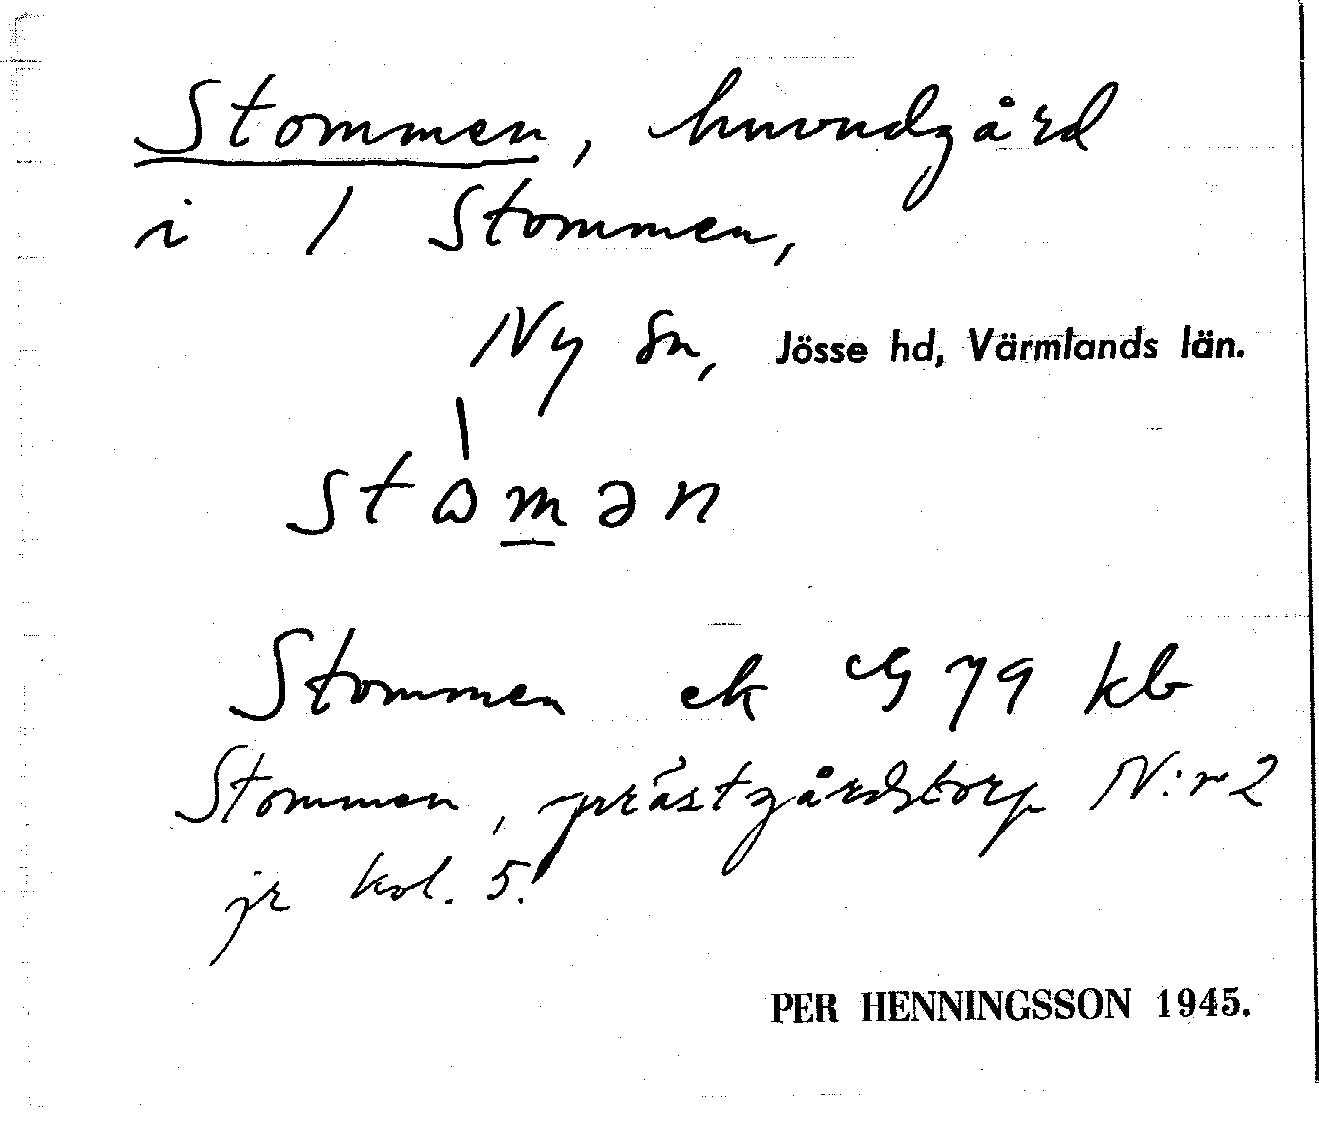 Stommen, huvudgård
i 1 Stommen,
Ny sn, Jösse hd, Värmlands län.
stòmən
Stommen ek 79 kb
Stommen, prästgårdstorp N:r 2
jr kol. 5.
PER HENNINGSSON 1945.